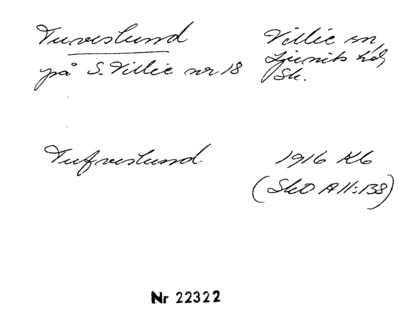 Tuveslund Villie sn,
på S. Villie nr 18 Ljunits hd,
Sk.
Tufveslund 1916 Kb
(SkO A11:138)
Nr 22322